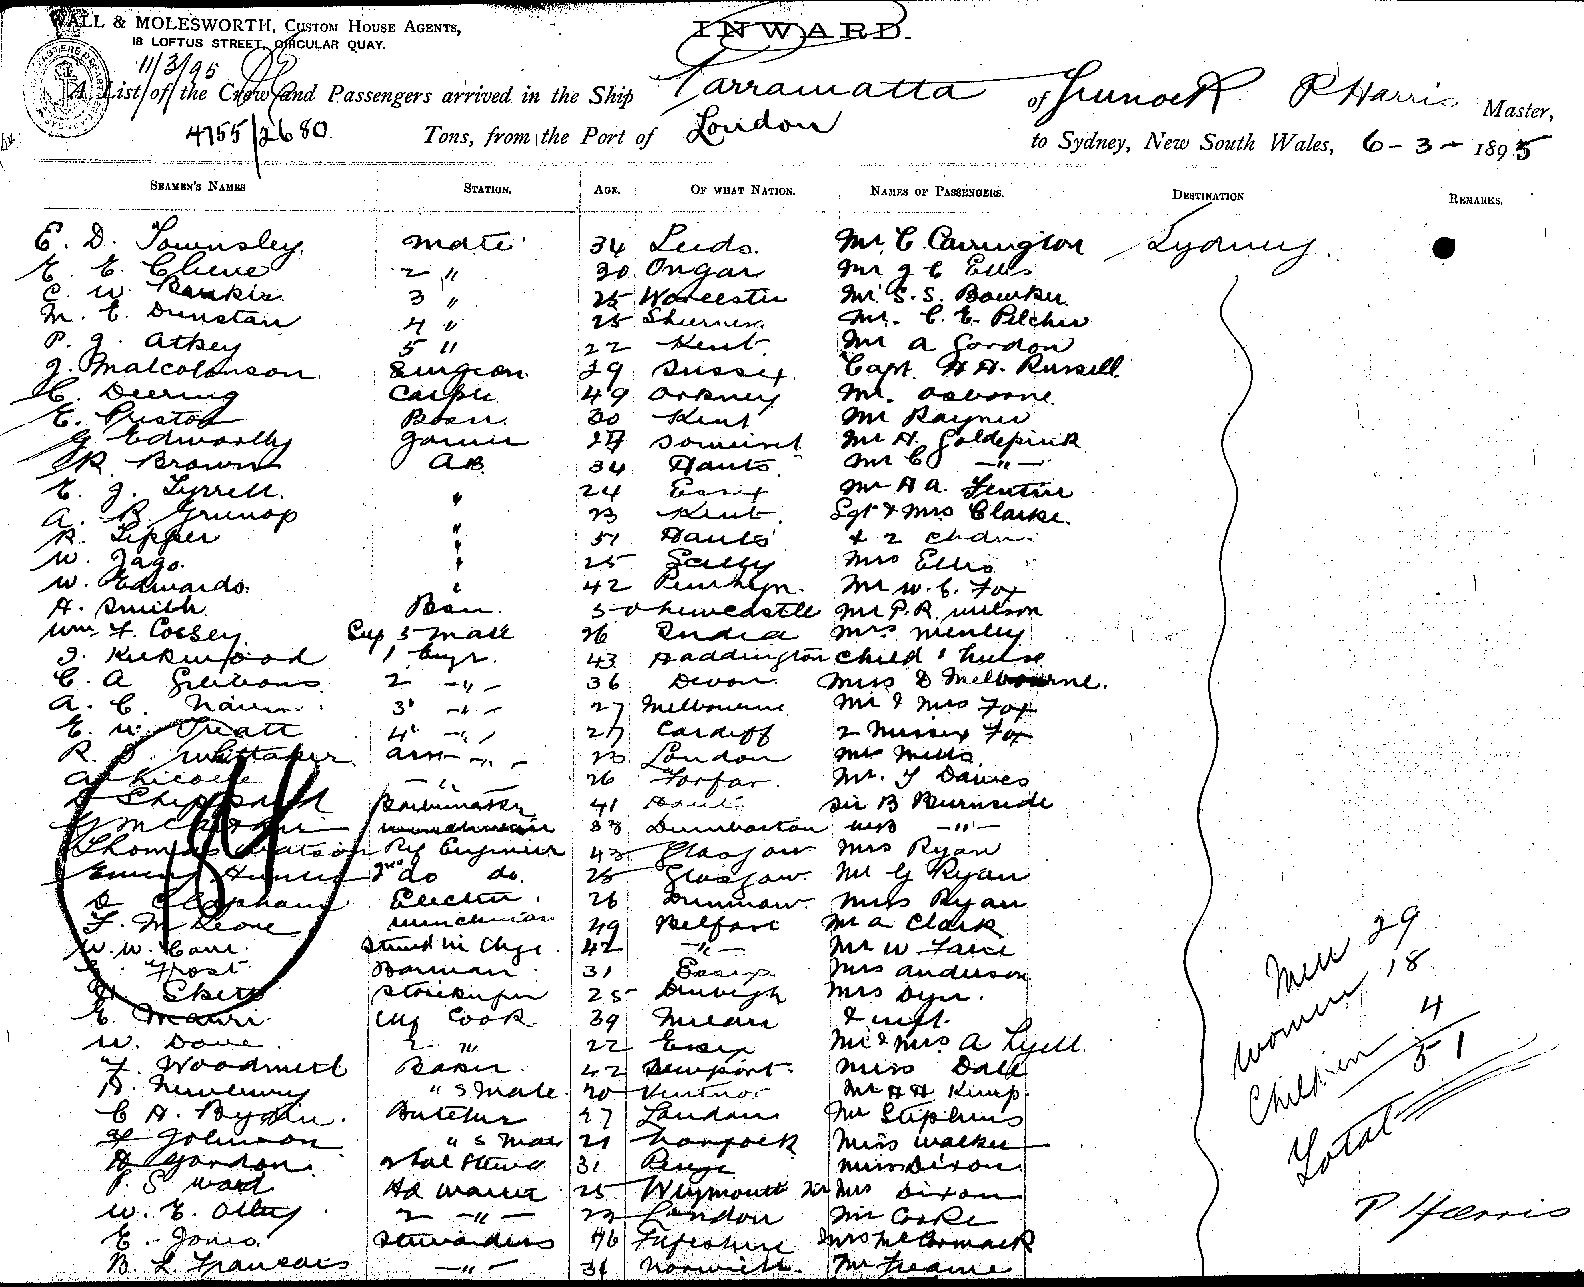 WALL & MOLESWORTH, CUSTOM HOUSE AGENTS,
18 LOFTUS STREET, CIRCULAR QUAY.
INWARD.
11/3/95
A List of the Crew and Passengers arrived in the Ship Parramatta of Greenock P Harris Master,
4755/2680 Tons, from the Port of London to Sydney, New South Wales, 6-3-1895
SEAMEN'S NAMES STATION. AGE. OF WHAT NATION. NAMES OF PASSENGERS. DESTINATION REMARKS.
E. D. Townsley Mate 34 Leeds. Mr. C Carrington Sydney
E. E. 2 " 30 Ongar Mr J C Ellis
C. W. Rankin 3 " 25 Worcester Mr. S. S. Bowker
M. E. Dunstan 4 " 25 Mr. C. E. Pilcher
P. J. Atkey 5 " 22 Kent. Mr A Gordon
J. Malcolmson Surgeon 29 Sussex Capt. H. H. Russell
C. Deering Carptr 49 Orkney Mr. Osborne
E. Preston Bosn 30 Kent Mr Rayner
G Edworthy 24 Somerset Mr H. Goldspink
R. Brown AB 34 Hants Mr C — " —
E. J. Tyrrell. " 24 Essex Mr H A.
A. B. " 23 Kent. Sgt & Mrs Clarke.
R. Lipper " 51 Hants & 2 chdn.
W. Jago. " 25 Scilly Mrs Ellis
W. Edwards. " 42 Penrhyn. Mr W. C. Fox
H. Smith 50 Newcastle Mr P. R. Wilson
Wm. F. Cossey. 26 India Mrs Menley
J. Kirkwood 1 Engr. 43 Haddington child & nurse
C. A Gibbons 2 — " — 36 Devon Miss D Melbourne.
A. C. Nairn 3 — " — 27 Melbourne Mr & Mrs Fox
E. W. Treatt 4 — " — 27 Cardiff 2 Misses Fox
R. Whittaker 23 London Mr Mills
A Nicolle — " — 26 Forfar. Mr. F Dawes
Sheppard Boilermaker 41 Sir B Burnside
38 Dumbarton Mrs — " —
Thomas Watson Rfg Engineer 43 Glasgow Mrs Ryan
Hunter 2nd do do. 25 Glasgow Mr G Ryan
D Clephane Electn. 26 Dunmow Miss Ryan
Winchman 49 Belfast Mr A Clark
W. W. Carr. Stewd in Chge. 42 — " — Mr W
Frost Barman 31 Essex Mrs Anderson
Storekeeper 25 Denbigh Mrs Dyer.
E. Mauri Cook 39 Milan & inft.
W. Dove. 2 " 22 Essex Mr & Mrs A Lyell
F. Woodmell Baker 42 Newport. Miss Dale
H. Newbury " s Mate 20 Ventnor Mr H H Kemp.
C H. Butcher 27 London Mr Stephens
F Johnson " s Mate 21 Miss Walker
H Gordon. 31 Penge Miss Dixon.
P. S Ward Hd Waiter 25 Weymouth Mrs Dixon
W. E. 2 — " — 23 London Mr Cooke
E. Jones Stewardess 46 Fifeshire Mrs McCormack
B. L Francois — " — 31 Norwich Mr
Men 29
Women 18
Children 4
Total 51
P Harris